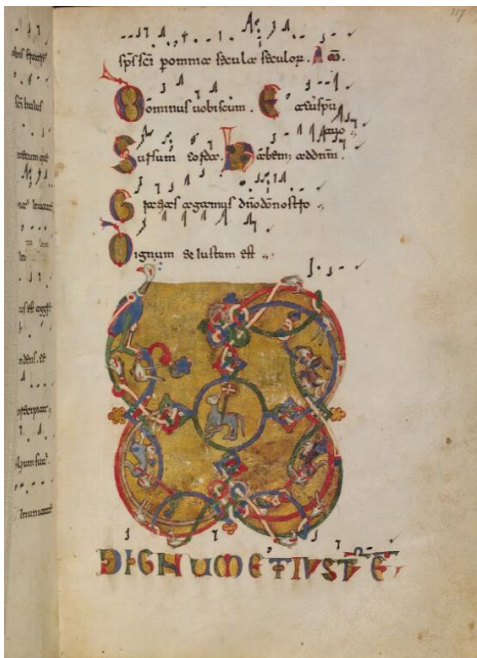 117
sp̄s sc̄i p omnia secula seculoꝝ. Am̄.
Dominus uobiscum. Et cū sp̄u
tuo
Sursum corda. Habem; ad dn̄m.
Gratias agamus dn̄o dō nostro
Dignum et iustum est
DIGNUM ET IUSTŪ Ē